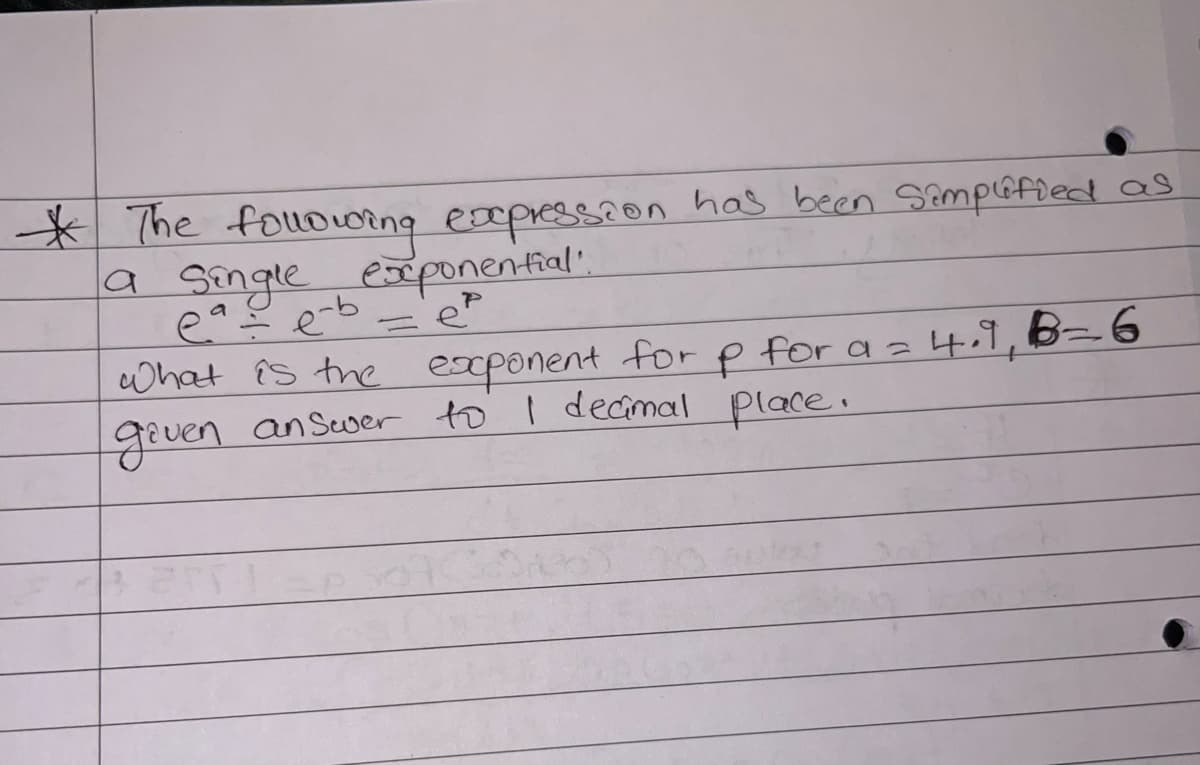 * The following expression has been simplified as
a single exponential:
e^a ÷ e^-b = e^p
What is the exponent for p for a = 4.9, B = 6
given answer to 1 decimal place.